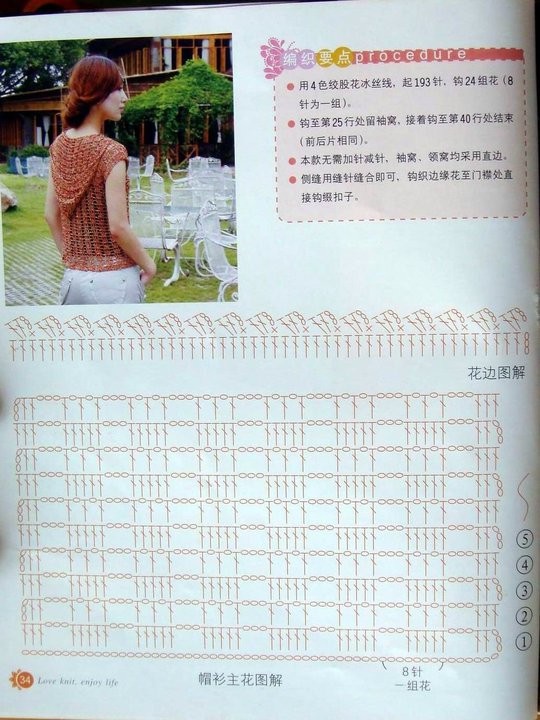 编织要点procedure
● 用4色绞股花冰丝线，起193针，钩24组花（8
针为一组）。
● 钩至第25行处留袖窝，接着钩至第40行处结束
（前后片相同）。
● 本款无需加针减针，袖窝、领窝均采用直边。
● 侧缝用缝针缝合即可，钩织边缘花至门襟处直
接钩缀扣子。
花边图解
⑤
④
③
②
①
8针
一组花
帽衫主花图解
34 Love knit. enjoy life